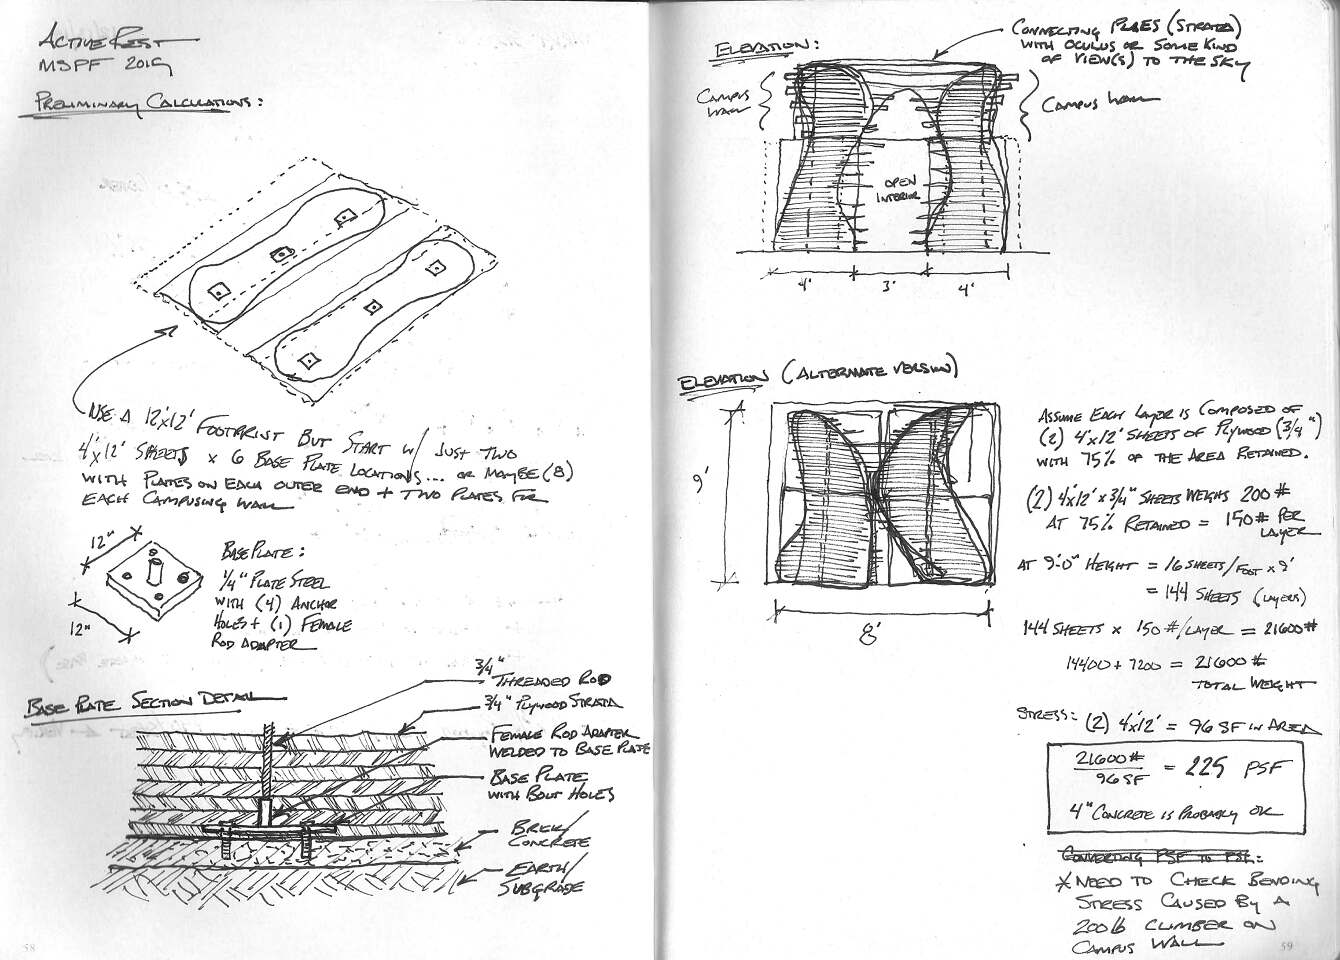 ACTIVE REST
MSPF 2019
PRELIMINARY CALCULATIONS:
USE A 12'x12' FOOTPRINT BUT START W/ JUST TWO
4'x12' SHEETS x 6 BASE PLATE LOCATIONS... OR MAYBE (8)
WITH PLATES ON EACH OUTER END + TWO PLATES FOR
EACH CAMPUSING WALL
12"
12"
BASE PLATE:
1/4" PLATE STEEL
WITH (4) ANCHOR
HOLES + (1) FEMALE
ROD ADAPTER
BASE PLATE SECTION DETAIL
3/4"
THREADED ROD
3/4" PLYWOOD STRATA
FEMALE ROD ADAPTER
WELDED TO BASE PLATE
BASE PLATE
WITH BOLT HOLES
BRICK/
CONCRETE
EARTH/
SUBGRADE
58
ELEVATION:
CONNECTING (STRATA)
WITH OCULUS OR SOME KIND
OF VIEW(S) TO THE SKY
CAMPUS
WALL
CAMPUS WALL
OPEN
INTERIOR
4' 3' 4'
ELEVATION (ALTERNATE VERSION)
9'
8'
ASSUME EACH LAYER IS COMPOSED OF
(2) 4'x12' SHEETS OF PLYWOOD (3/4")
WITH 75% OF THE AREA RETAINED.
(2) 4'x12'x3/4" SHEETS WEIGHS 200#
AT 75% RETAINED = 150# PER
LAYER
AT 9'-0" HEIGHT = 16 SHEETS/FOOT x 9'
= 144 SHEETS (LAYERS)
144 SHEETS x 150 #/LAYER = 21600#
14400 + 7200 = 21600#
TOTAL WEIGHT
STRESS: (2) 4'x12' = 96 SF IN AREA
21600# / 96 SF = 225 PSF
4" CONCRETE IS PROBABLY OK
CONVERTING PSF TO PSI:
* NEED TO CHECK BENDING
STRESS CAUSED BY A
200 lb CLIMBER ON
CAMPUS WALL
59